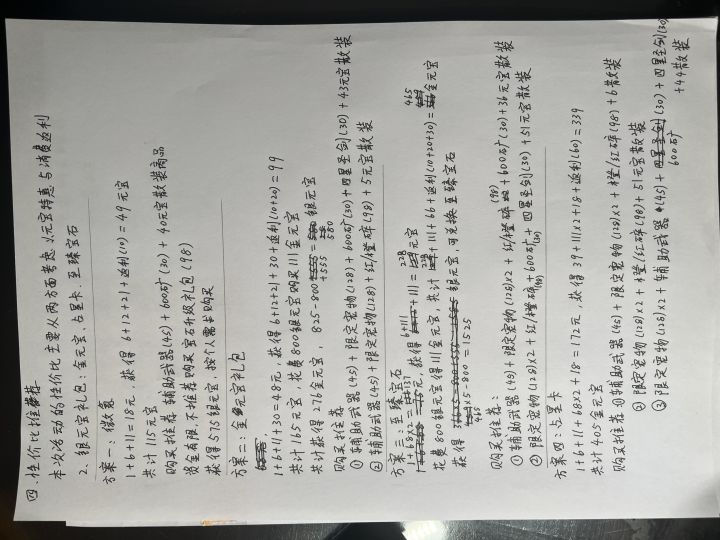 四.性价比推荐
本次活动的性价比主要从两方面考虑:元宝特惠与消费返利
2、银元宝礼包、金元宝、占星卡、至臻宝石
方案一:微氪
1+6+11=18元 获得 6+12+21+返利(10)=49元宝
共计115元宝
购买推荐 辅助武器(45)+600矿(30)+40元宝散装商品
资金有限不推荐购买 宝石升级礼包(98)
获得575银元宝 按个人需求购买
方案二:金元宝礼包
1+6+11+30=48元,获得 6+12+21+30+返利(10+20)=99
共计165元宝,花费800银元宝购买111金元宝
共计获得276金元宝, 825-800+555=580银元宝
购买推荐
①辅助武器(45)+限定宠物(128)+600矿(30)+四星圣剑(30)+43元宝散装
②辅助武器(45)+限定宠物(128)+红/橙碎(98)+5元宝散装
方案三:至臻宝石
1+68x2= 获得 6+111+111=228元宝
花费800银元宝得111金元宝,共计228+111+66+返利(10+20+30)=465金元宝
获得 465x5-800=1525 银元宝,可兑换至臻宝石
购买推荐:
①辅助武器(45)+限定宠物(128)x2+红/橙碎(98)+600矿(30)+36元宝散装
②限定宠物(128)x2+红/橙碎(98)+600矿(30)+四星圣剑(30)+51元宝散装
方案四:占星卡
1+6+11+68x2+18=172元,获得39+111x2+18+返利(60)=339
共计405金元宝
购买推荐 ①辅助武器(45)+限定宠物(128)x2+橙/红碎(98)+6散装
②限定宠物(128)x2+橙/红碎(98)+51元宝散装
③限定宠物(128)x2+辅助武器(45)+600矿(30)+四星圣剑(30)
+44散装